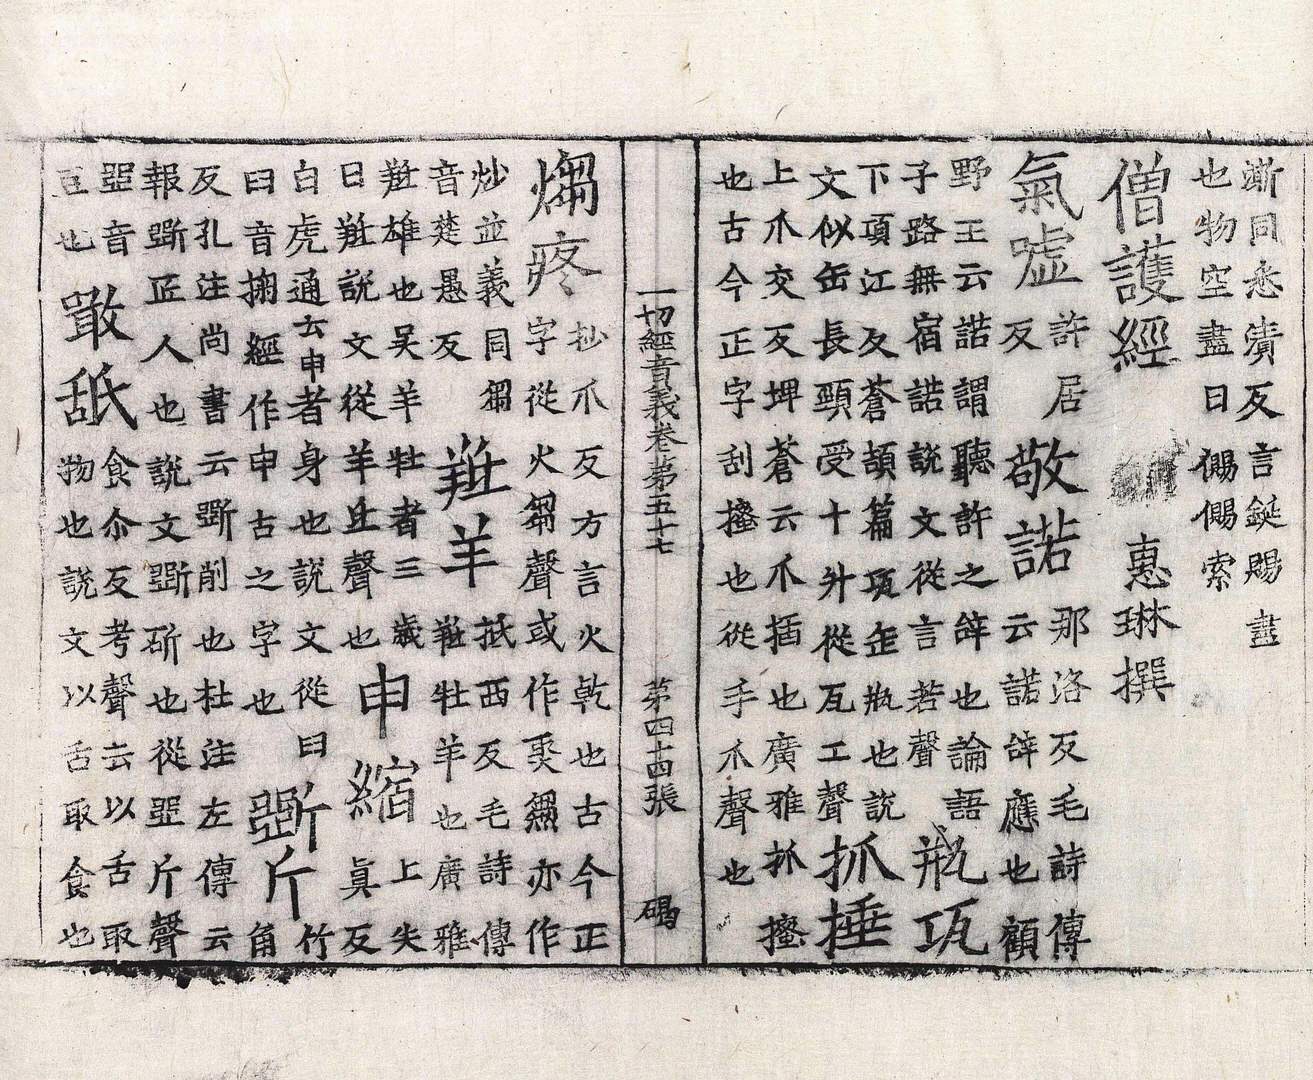 漸同恣賷反言鋋賜盡
也物空盡曰儩儩索
僧護經 惠琳撰
氣噓許居反
敬諾那洛反毛詩傳云諾辝應也顧
野王云諾謂聽許之辝也論語
子路無宿諾說文從言若聲
瓶瓨
下項江反蒼頡篇瓨缶瓶也說
文似缶長頸受十升從瓦工聲
抓捶
上爪交反埤蒼云爪搯也廣雅抓搔
也古今正字刮搔也從手爪聲也
一切經音義卷第五十七 第四十四張 碣
㷌疼
抄爪反方言火乾也古今正
字從火芻聲或作㷅䎟亦作
炒並義同芻
音楚愚反
羝羊
抵西反毛詩傳
羝牡羊也廣雅
羝雄也吳羊牡者三歲
曰羝說文從羊氐聲也
申縮
上失真反
白虎通云申者身也說文從臼
曰音掬經作申古之字也
斲斤
竹角
反孔注尚書云斲削也杜注左傳云
報斲匠人也說文斲斫也從㔁斤聲
㔁音豆也
㪇舐
食尒反考聲云以舌取
物也說文以舌取食也